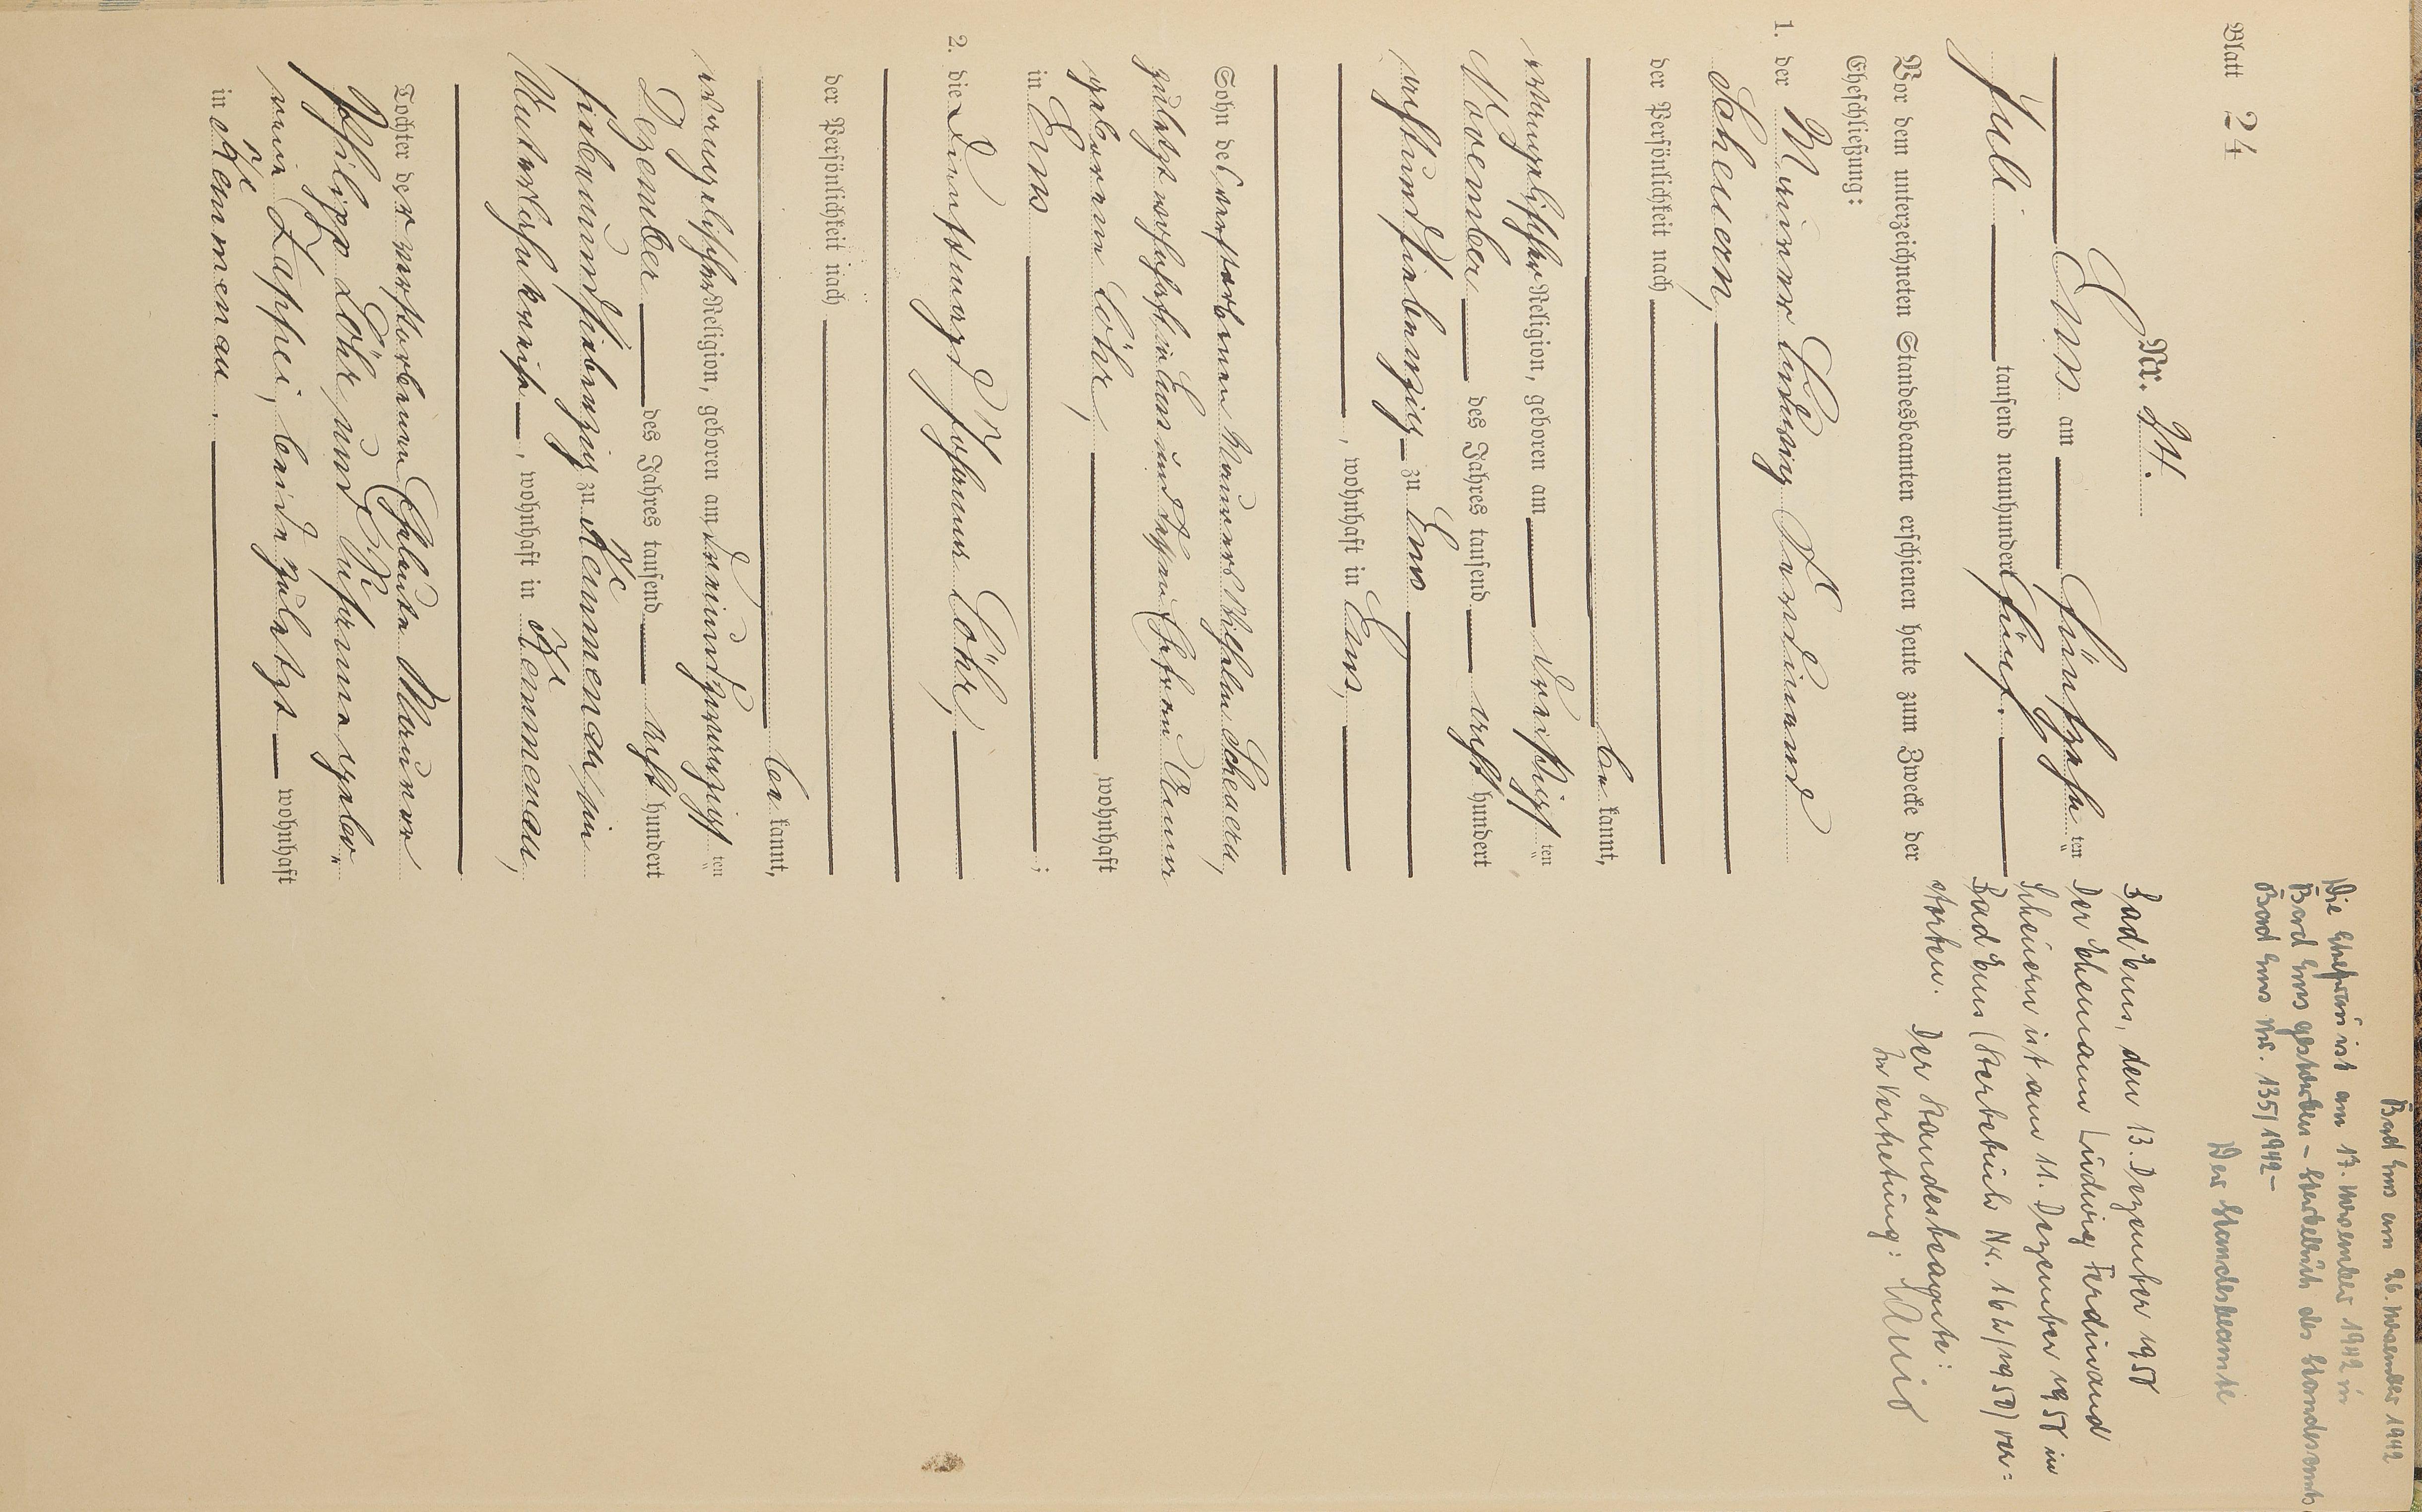 Blatt 24
Nr. 24.
Ems am Fünfzehn ten
Juli tausend neunhundert fünf.
Vor dem unterzeichneten Standesbeamten erschienen heute zum Zwecke der
Eheschließung:
1. der Maurer Ludwig Ferdinand
Scheuern,
der Persönlichkeit nach
be kannt,
evangelischer Religion, geboren am dreißigs ten
November des Jahres tausend acht hundert
achtundsiebenzig zu Ems
, wohnhaft in Ems,
Sohn des verstorbenen Maurers Wilhelm Scheuern,
zuletzt wohnhaft in Ems und dessen Ehefrau Anna
geborene Löhr, wohnhaft
in Ems ;
2. die Dienstmagd Johanna Löhr,
der Persönlichkeit nach
be kannt,
evangelischer Religion, geboren am dreiundzwanzigs ten
Dezember des Jahres tausend acht hundert
siebenundsiebenzig zu Kemmenau im
Unterlahnkreise , wohnhaft in Kemmenau,
Tochter der verstorbenen Eheleute Maurer
Philipp Löhr und Johanna gebo-
rene Lappei, beide zuletzt wohnhaft
in Kemmenau.
Bad Ems am 26. November 1942
Die Ehefrau ist am 17. November 1942 in
Bad Ems gestorben – Sterbebuch des Standesamts
Bad Ems Nr. 135/1942 –
Der Standesbeamte
Bad Ems, den 13. Dezember 1950
Der Ehemann Ludwig Ferdinand
Scheuern ist am 11. Dezember 1950 in
Bad Ems (Sterbebuch Nr. 164/1950) ver=
storben. Der Standesbeamte:
In Vertretung: